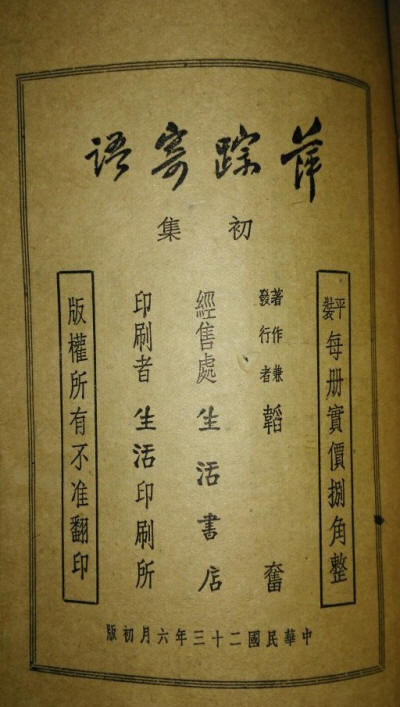 萍踪寄語
初集
平裝每册實價捌角整
著作兼發行者 韜奮
經售處 生活書店
印刷者 生活印刷所
版權所有不准翻印
中華民國二十三年六月初版